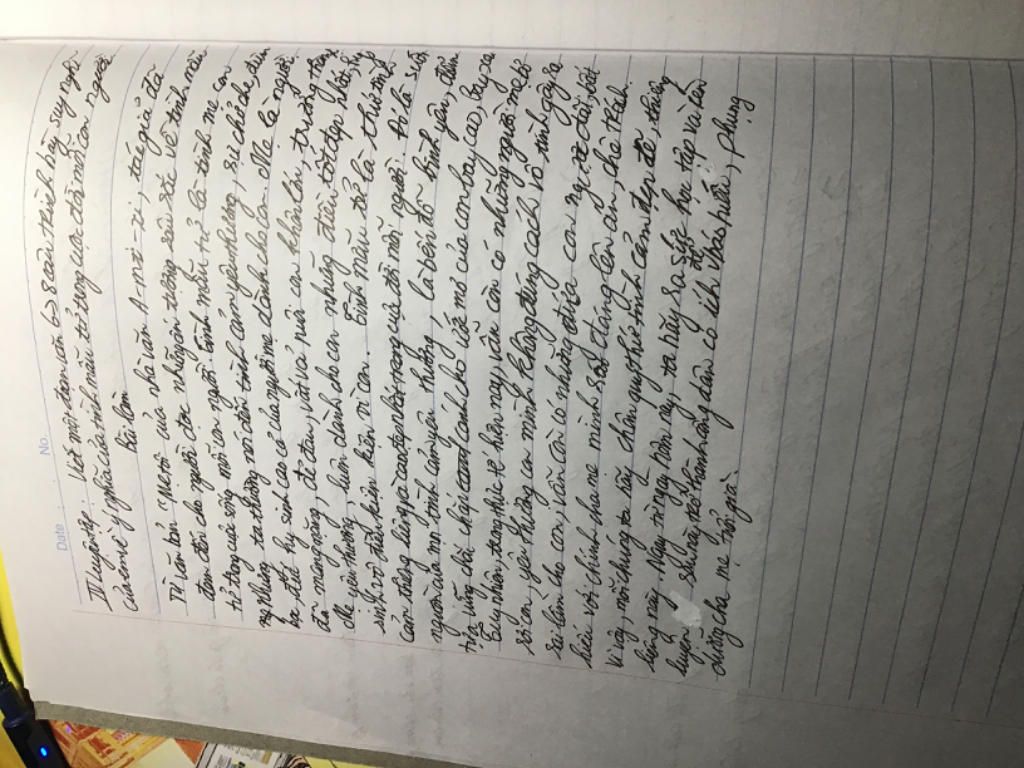 Date : No.
III Luyện tập : Viết một đoạn văn 6-> 8 câu trình bày suy nghĩ
của em về ý nghĩa của tình mẫu tử trong cuộc đời mỗi con người
Bài làm
Từ văn bản "Mẹ tôi" của nhà văn A-mi-xi, tác giả đã
đem đến cho người đọc những ấn tượng sâu sắc về tình mẫu
tử trong cuộc sống mỗi con người. Tình mẫu tử là tình mẹ con
người không ta thường nói đến tình cảm yêu thương, sự chở che, đùm
bọc, đức hy sinh cao cả của người mẹ dành cho con. Mẹ là người
đã mang nặng, đẻ đau, vất vả nuôi con khôn lớn, trưởng thành
che, yêu thương, luôn dành cho con những điều tốt đẹp nhất, hy
sinh vô điều kiện vì con. Tình mẫu tử là thứ tình
cảm thiêng liêng và cao đẹp nhất trong cuộc đời mỗi người. Đó là suối
nguồn của mọi tình cảm yêu thương, là bến đỗ bình yên, điểm
tựa vững chãi, chắp cánh cho ước mơ của con bay cao, bay xa
Tuy nhiên, trong thực tế hiện nay, vẫn còn có những người mẹ bỏ
rơi con, yêu thương con mình không đúng cách vô tình gây ra
sai lầm cho con, vẫn còn có những đứa con ngỗ ngược, bất
hiếu với chính cha mẹ mình thật đáng lên án, chê trách.
Vì vậy, mỗi chúng ta hãy trân quý thứ tình cảm đẹp đẽ, thiêng
liêng này. Ngay từ ngày hôm nay, ta hãy ra sức học tập và rèn
luyện để trở thành người có ích, báo hiếu, phụng
dưỡng cha mẹ tuổi già.